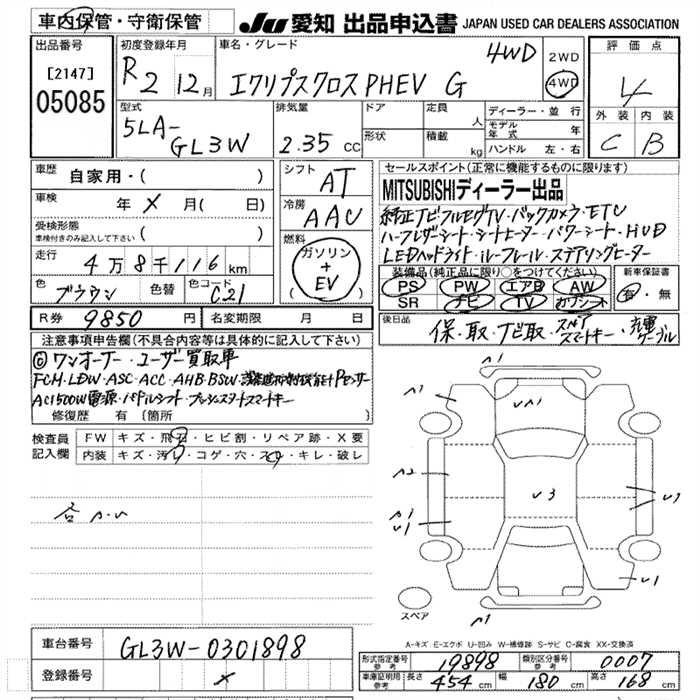 車内保管・守衛保管
JU 愛知 出品申込書 JAPAN USED CAR DEALERS ASSOCIATION
出品番号
[2147]
05085
初度登録年月
R2 12月
車名・グレード
エクリプスクロスPHEV G 4WD
2WD
4WD
評価点
4
外装 内装
C B
型式
5LA-
GL3W
排気量
2.35 CC
ドア
形状
定員 人
積載 kg
ディーラー・並行
モデル年式 年
ハンドル 左・右
車歴
自家用・( )
車検 年 × 月( 日)
受検形態
車検付きのみ記入して下さい ( )
走行 4万8千116km
色 ブラウン 色替 色コード C21
シフト AT
冷房 AAC
燃料
ガソリン
+
EV
( )
セールスポイント(正常に機能するものに限ります)
MITSUBISHIディーラー出品
純正ナビ・フルセグTV・バックカメラ・ETC
ハーフレザーシート・シートヒーター・パワーシート・HUD
LEDヘッドライト・ルーフレール・ステアリングヒーター
装備品(純正品に限り○をつけてください)
PS PW エアB AW
SR ナビ TV カワシート
新車保証書
有・無
R券 9850円 名変期限 月 日
後日品
保・取・ナビ取・スペア
スマートキー・充電
ケーブル
注意事項申告欄(不具合内容等は具体的に記入して下さい)
◎ワンオーナー・ユーザー買取車
FCM・LDW・ASC・ACC・AHB・BSW・
AC1500W電源・パドルシフト・プッシュスタートスマートキー
修復歴 有 〔箇所 〕
検査員
記入欄
FW キズ・飛石・ヒビ割・リペア跡・X要
内装 キズ・汚レ・コゲ・穴・スレ・キレ・破レ
A1
A1
UA1
A2
U3
A1
U1
U1
A1
スペア
A-キズ E-エクボ U-凹み W-補修跡 S-サビ C-腐食 XX-交換済
車台番号 GL3W-0301898
登録番号 ×
形式指定番号
参考
19898
類別区分番号
参考
0007
車庫証明用
参考
長さ 454 cm 幅 180 cm 高さ 168 cm